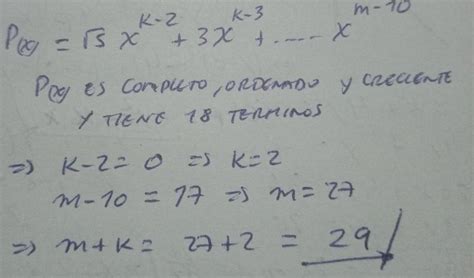 P(x) = √3 x^{k-2} + 3x^{k-3} + ..... x^{m-10}
P(x) ES COMPLETO, ORDENADO Y CRECIENTE
Y TIENE 18 TERMINOS
=> k-2=0 => k=2
m-10 = 17 => m=27
=> m+k= 27+2 = 29